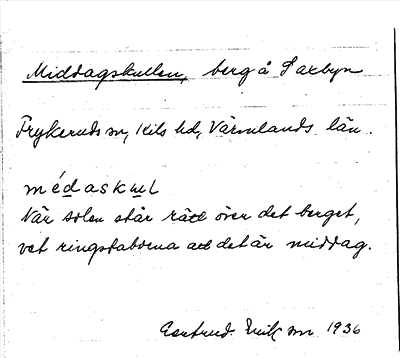 Middagskullen, berg å Saxbyn
Frykeruds sn, Kils hd, Värmlands län.
médaskuɩl
När solen står rätt över det berget,
vet ringstaborna att det är middag.
Gertrud Erikson 1936